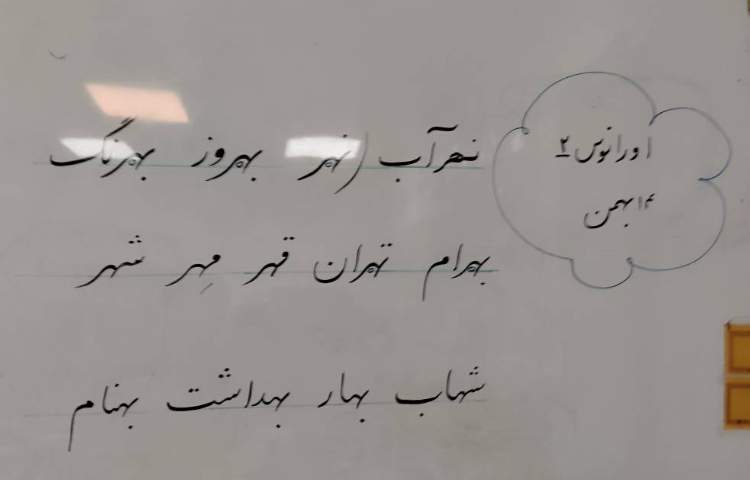 اورانوس ۲
۱۴ بهمن
نهر آب (نهر بهروز بهرنگ
بهرام تهران قهر مِهر شهر
شهاب بهار بهداشت بهنام